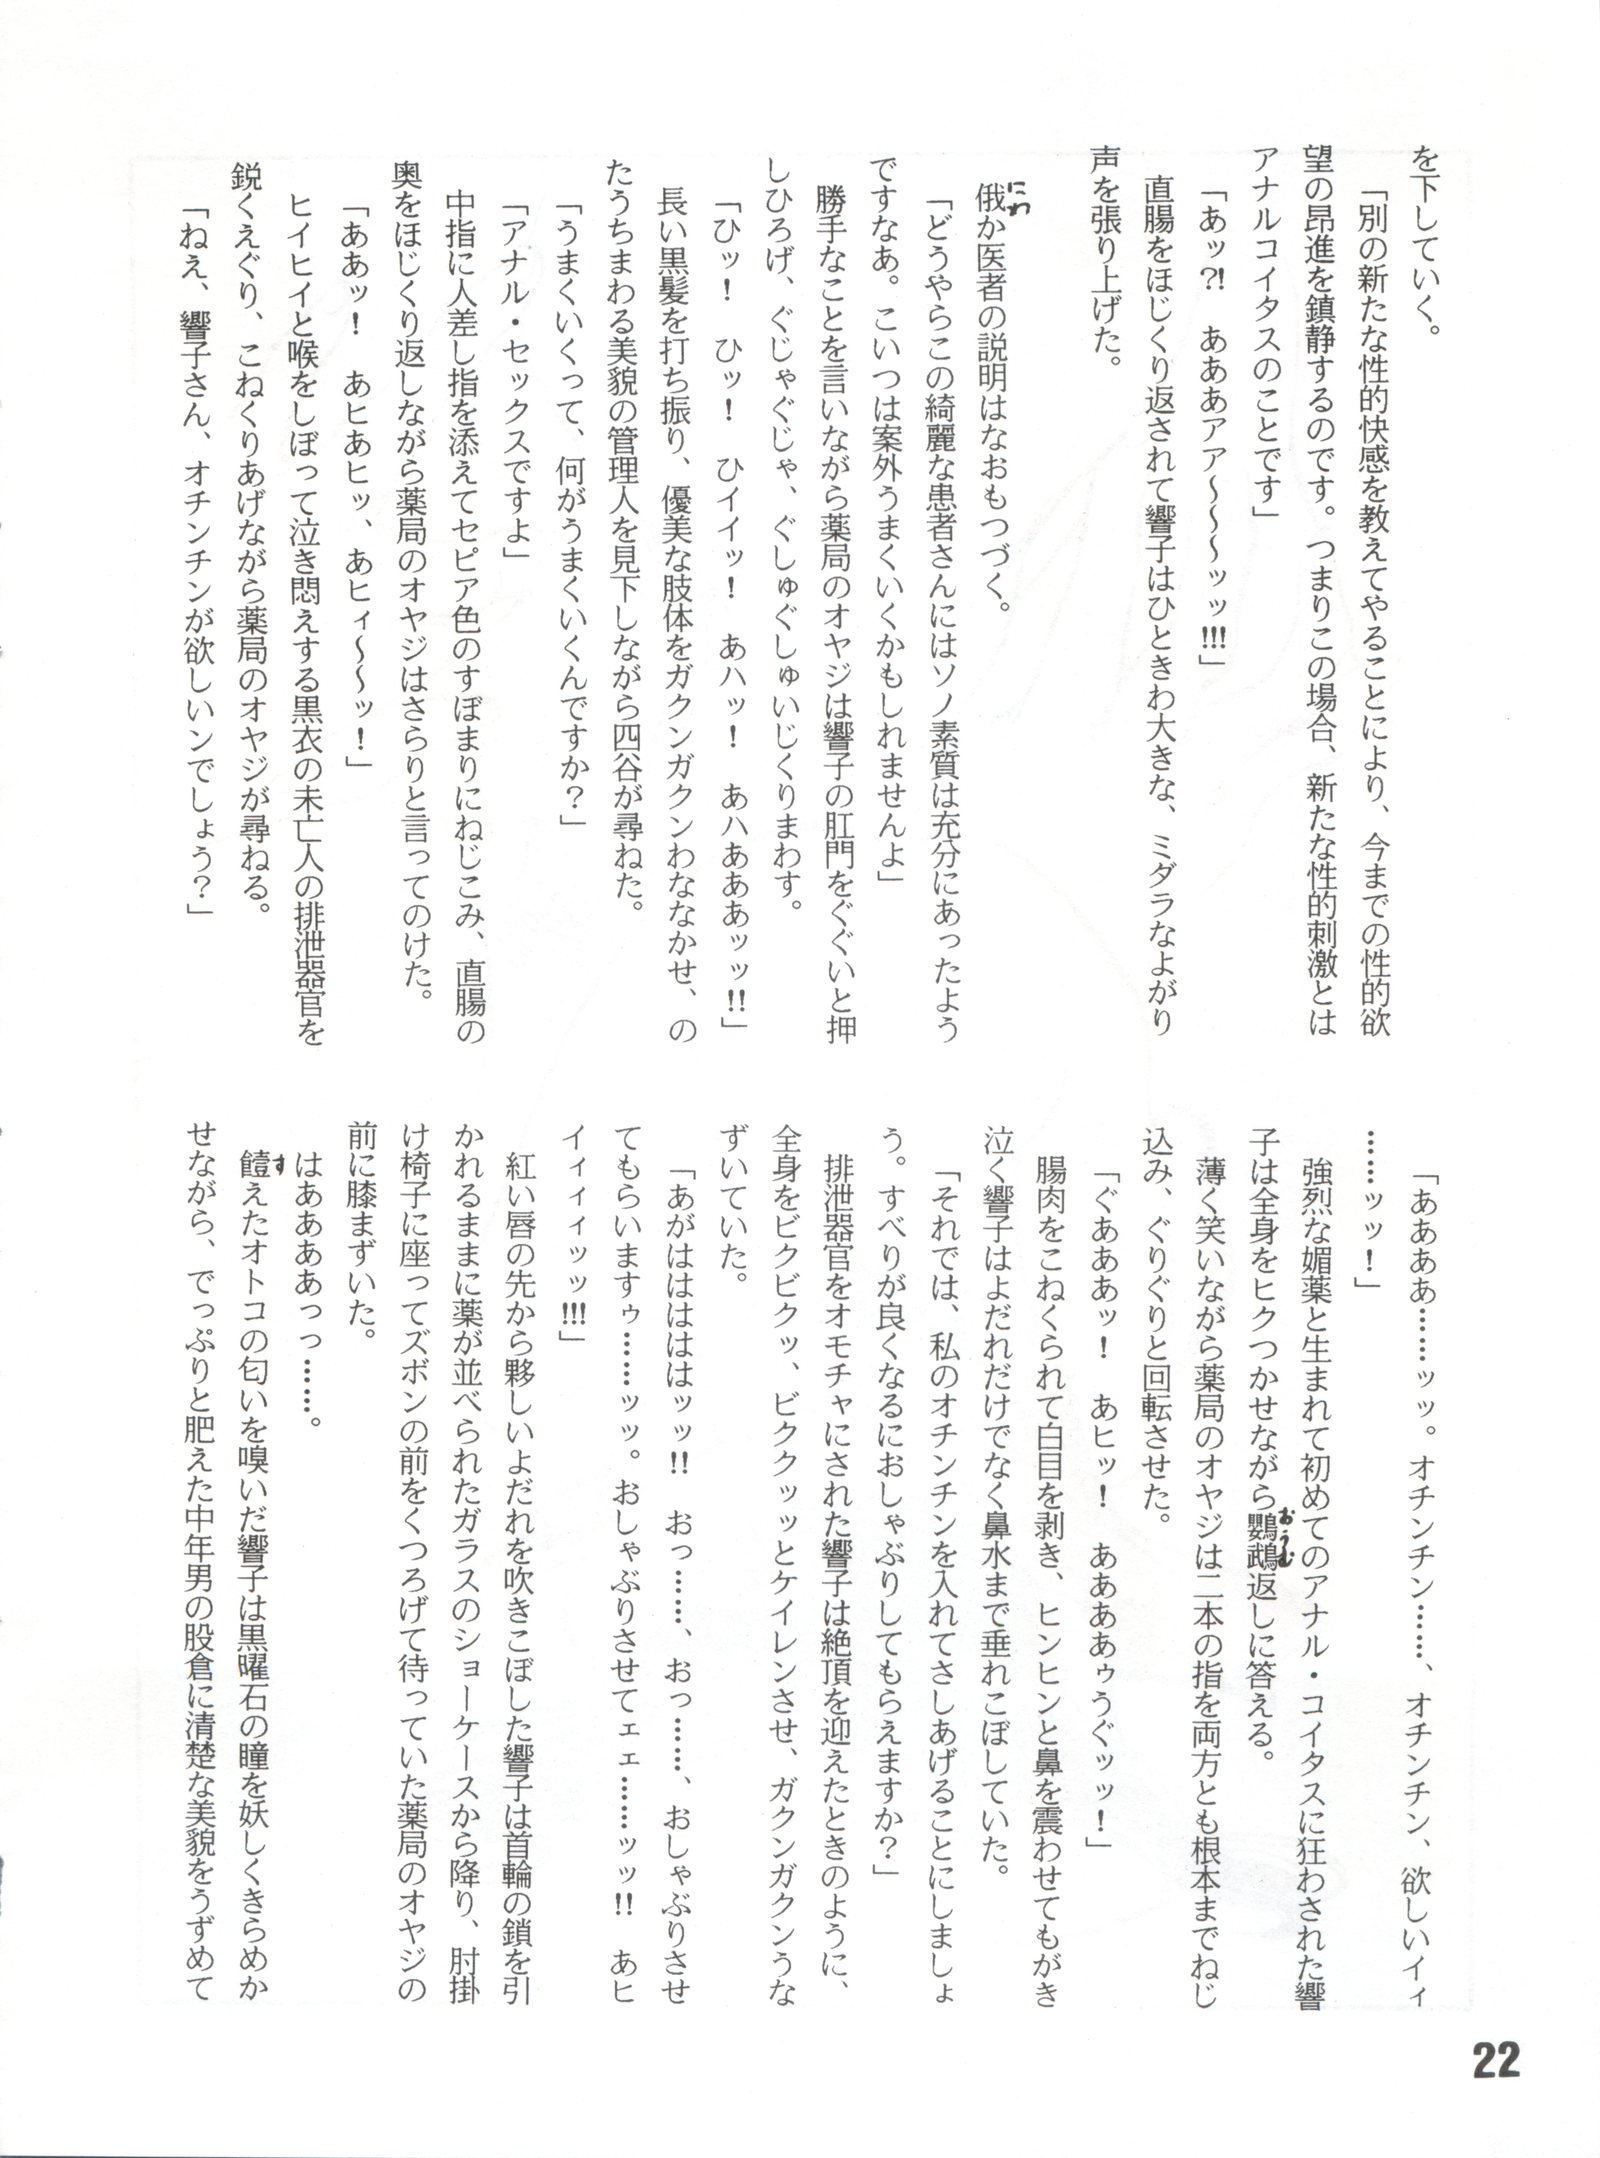 を下していく。
「別の新たな性的快感を教えてやることにより、今までの性的欲
望の昂進を鎮静するのです。つまりこの場合、新たな性的刺激とは
アナルコイタスのことです」
「あッ?! あああアア〜〜〜ッッ!!!」
直腸をほじくり返されて響子はひときわ大きな、ミダラなよがり
声を張り上げた。
俄か医者の説明はなおもつづく。
「どうやらこの綺麗な患者さんにはソノ素質は充分にあったよう
ですなあ。こいつは案外うまくいくかもしれませんよ」
勝手なことを言いながら薬局のオヤジは響子の肛門をぐぐいと押
しひろげ、ぐじゃぐじゃ、ぐしゅぐしゅいじくりまわす。
「ひッ! ひッ! ひイイッ! あハッ! あハあああッッ!!」
長い黒髪を打ち振り、優美な肢体をガクンガクンわななかせ、の
たうちまわる美貌の管理人を見下しながら四谷が尋ねた。
「うまくいくって、何がうまくいくんですか?」
「アナル・セックスですよ」
中指に人差し指を添えてセピア色のすぼまりにねじこみ、直腸の
奥をほじくり返しながら薬局のオヤジはさらりと言ってのけた。
「ああッ! あヒあヒッ、あヒィ〜〜ッ!」
ヒイヒイと喉をしぼって泣き悶えする黒衣の未亡人の排泄器官を
鋭くえぐり、こねくりあげながら薬局のオヤジが尋ねる。
「ねえ、響子さん、オチンチンが欲しいンでしょう?」
「ああああ……ッッ。オチンチン……、オチンチン、欲しいイィ
……ッッ!」
強烈な媚薬と生まれて初めてのアナル・コイタスに狂わされた響
子は全身をヒクつかせながら鸚鵡返しに答える。
薄く笑いながら薬局のオヤジは二本の指を両方とも根本までねじ
込み、ぐりぐりと回転させた。
「ぐあああッ! あヒッ! ああああゥうぐッッ!」
腸肉をこねくられて白目を剥き、ヒンヒンと鼻を震わせてもがき
泣く響子はよだれだけでなく鼻水まで垂れこぼしていた。
「それでは、私のオチンチンを入れてさしあげることにしましょ
う。すべりが良くなるにおしゃぶりしてもらえますか?」
排泄器官をオモチャにされた響子は絶頂を迎えたときのように、
全身をビクビクッ、ビククッッとケイレンさせ、ガクンガクンうな
ずいていた。
「あがはははははッッ!! おっ……、おっ……、おしゃぶりさせ
てもらいますゥ……ッッ。おしゃぶりさせてェェ……ッッ!! あヒ
イィィィッッ!!!」
紅い唇の先から夥しいよだれを吹きこぼした響子は首輪の鎖を引
かれるままに薬が並べられたガラスのショーケースから降り、肘掛
け椅子に座ってズボンの前をくつろげて待っていた薬局のオヤジの
前に膝まずいた。
はあああっっ……。
饐えたオトコの匂いを嗅いだ響子は黒曜石の瞳を妖しくきらめか
せながら、でっぷりと肥えた中年男の股倉に清楚な美貌をうずめて
22